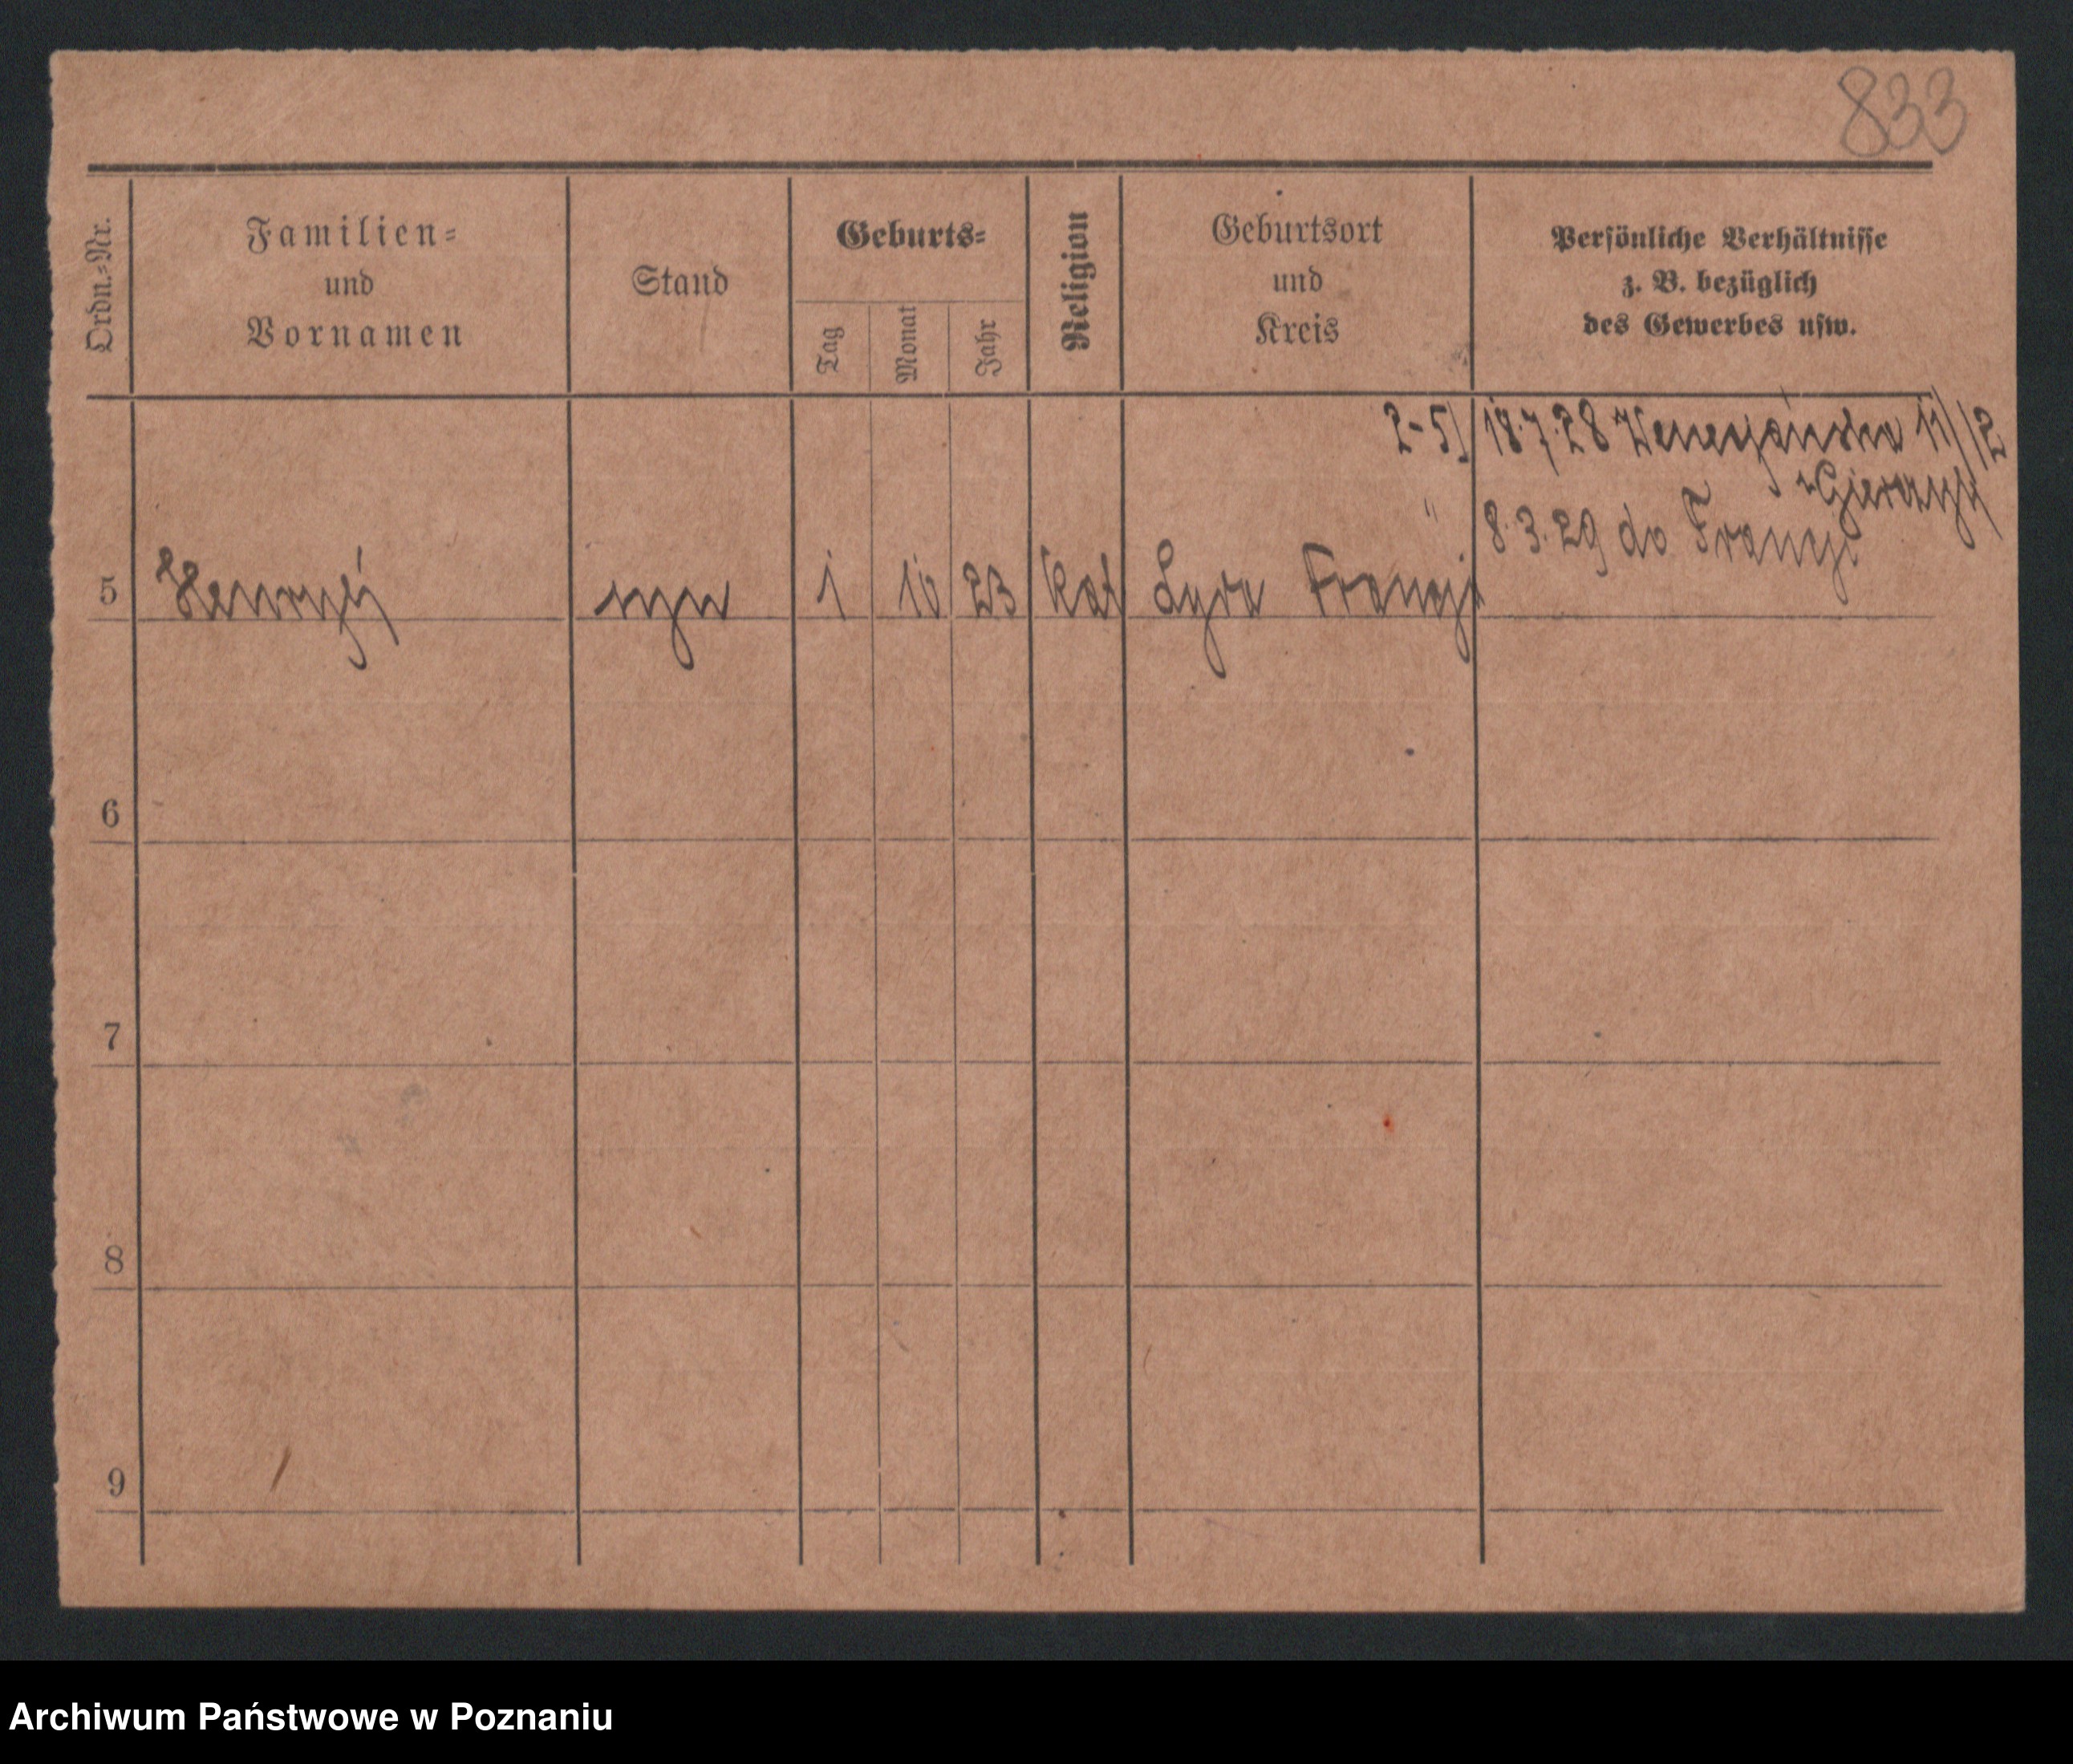 833
Ordn.-Nr.
Familien-
und
Vornamen
Stand
Geburts-
Tag
Monat
Jahr
Religion
Geburtsort
und
Kreis
Persönliche Verhältnisse
z. B. bezüglich
des Gewerbes usw.
2-5) 18.7.28 Wenecjańska 11/12
"
8.3.29 do Francji
5 Henryk syn 1 10 23 kat Lyra Francji
6
7
8
9
Archiwum Państwowe w Poznaniu